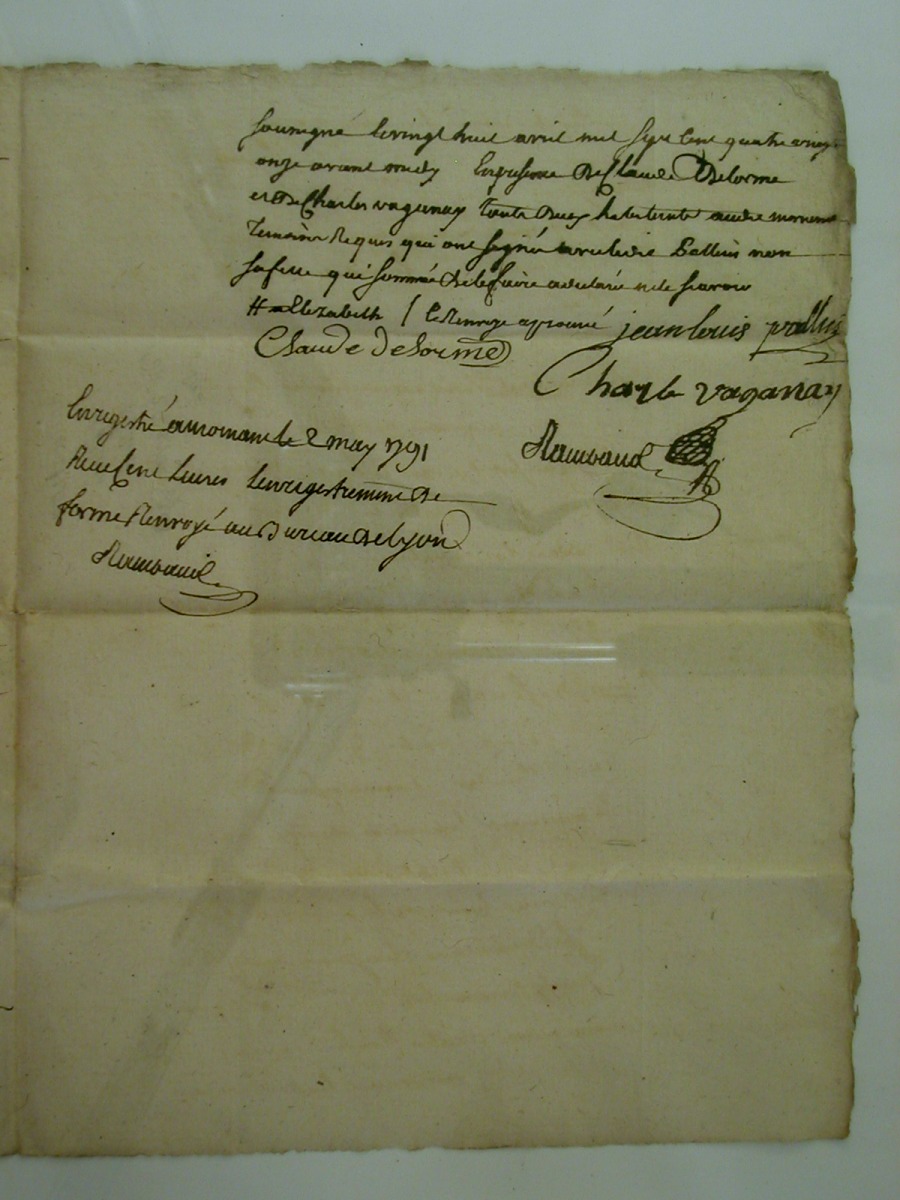 soussigné le vingt huit avril mil sept cent quatre vingt
onze avant midy En presence de Claude Delorme
et de Charles vaganay touts deux habitants audit mornant
temoins Requis qui ont signés avec ledit Pallui non
sa fille qui sommée de le faire a declaré ne le scavoir
# Elizabeth / le Renvoye approuvé jean louis pallui
Claude Delorme
Charle vaganay
Enregistré a mornant le 2 may 1791
Rambaud
Recu livres l'enregistrement de
forme Renvoyé au Bureau de lyon
Rambaud